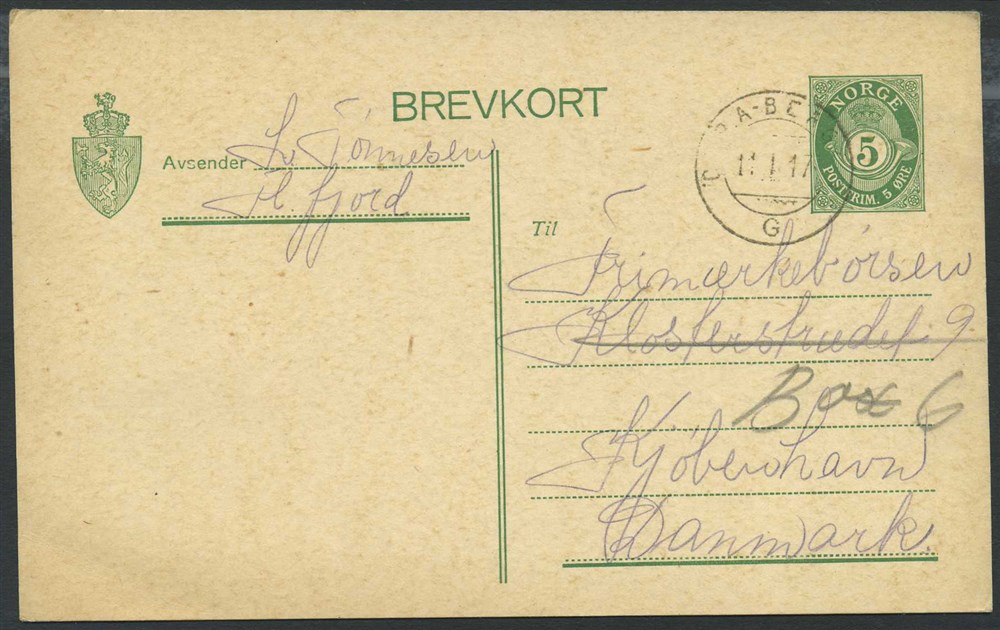 BREVKORT
Avsender L. Tönnesen
Fl. fjord
A-BE
11.I.17
G
NORGE
5
POSTFRIM. 5 ØRE
Til
Frimærkebörsen
Klosterstrædet 9
Box 6
Kjöbenhavn
Danmark.